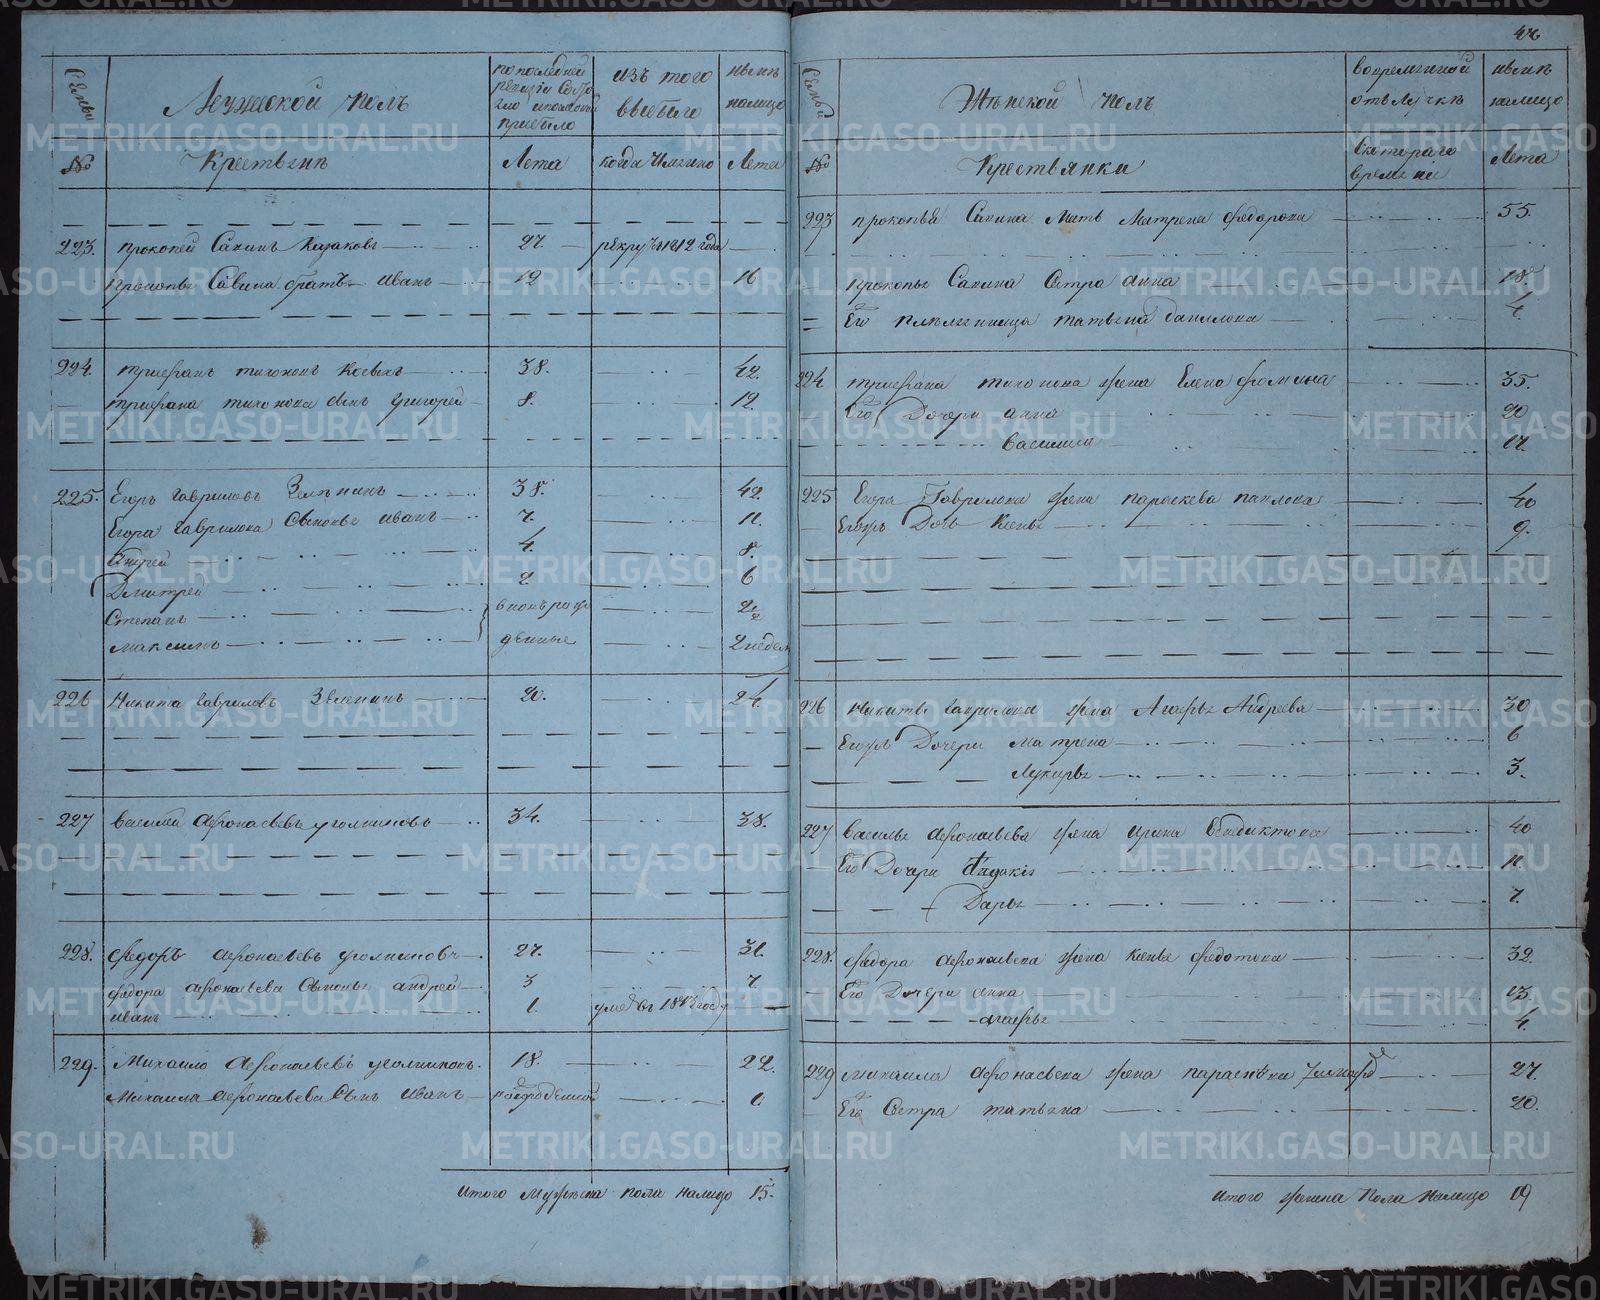 46
Семьи
Мужеской полъ
по последней ревизіи состояло и после прибыло
изъ того выбыло
ныне налицо
№
Крестьяне
Лета
когда имянно
Лета
223. прокопей Савинъ Казаковъ 27. рекрутъ 1812 года
прокопье Савина братъ иванъ 12 16
224. трифанъ тихоновъ 38. 42.
трифана тихонова сынъ григорей 8. 12.
225. Егоръ гавриловъ Зелянинъ 38. 42.
Егора гаврилова Сыновье иванъ 7. 11.
Андрей 4. 8.
Дмитрей 2 6
Степанъ
максимъ 2 недел
226 Никита гавриловъ Зеленинъ 20. 24.
227 василей афонасьевъ уголниковъ 34. 38.
228. федоръ афонасьевъ уголниковъ 27. 31.
федора афонасьева Сыновье андрей 3 7
иванъ 1. умре въ 1813 году
229. Михаило афонасьевъ уголниковъ. 18. 22.
Михаила афонасьева Сынъ иванъ 1.
итого мужеска пола налицо 15.
Семьи
Женской полъ
во временной отлучке
ныне налицо
№
Крестьянки
с котораго времени
Лета
223 прокопья Савина мать матрена федорова 55.
прокопье Савина Сестра анна 18
Его племянница татьяна данилова 4.
224. трифана тихонова жена Елена фомина 35.
Его Дочери анна 20
василиса 17.
225 Егора Гаврилова жена параскева павлова 40
Егоръ Дочь Ксенье 9.
226 никиты гаврилова жена Агафье Андреева 30
Егоръ Дочери матрена 6
Лукерье 3.
227 василье афонасьева жена ирина Венидиктова 40
Его Дочери Авдокія 11
Дарье 7.
228. федора афонасьева жена Ксенье федотова 32.
Его Дочери анна 13.
агафье 4.
229 михаила афонасьева жена 27.
Его Сестра татьяна 20.
итого женска пола налицо 19
METRIKI.GASO-URAL.RU